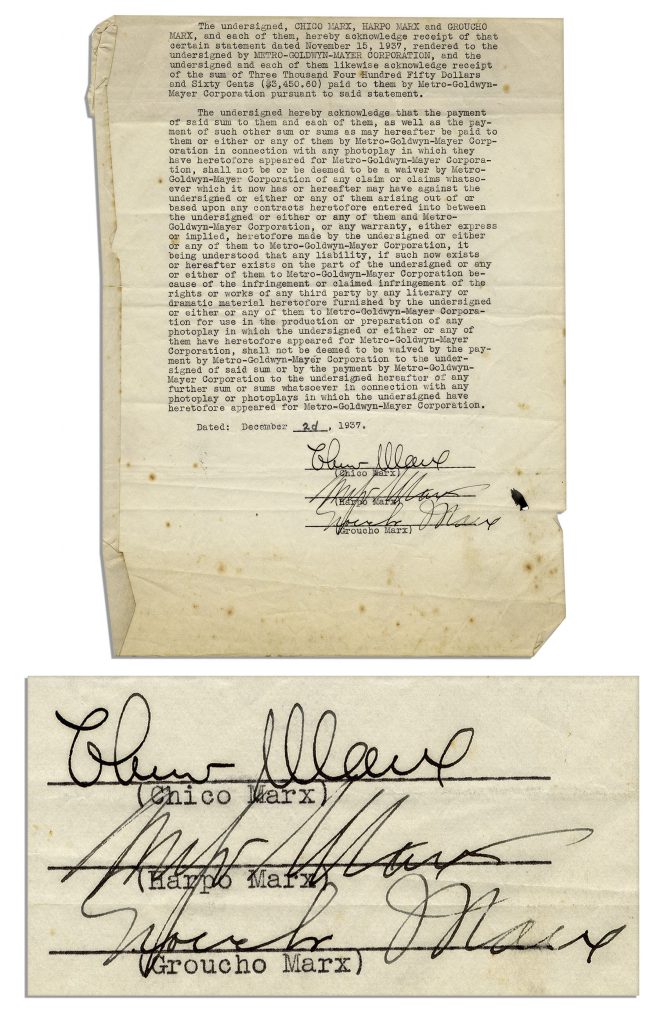 The undersigned, CHICO MARX, HARPO MARX and GROUCHO
MARX, and each of them, hereby acknowledge receipt of that
certain statement dated November 15, 1937, rendered to the
undersigned by METRO-GOLDWYN-MAYER CORPORATION, and the
undersigned and each of them likewise acknowledge receipt
of the sum of Three Thousand Four Hundred Fifty Dollars
and Sixty Cents ($3,450.60) paid to them by Metro-Goldwyn-
Mayer Corporation pursuant to said statement.
The undersigned hereby acknowledge that the payment
of said sum to them and each of them, as well as the pay-
ment of such other sum or sums as may hereafter be paid to
them or either or any of them by Metro-Goldwyn-Mayer Corp-
oration in connection with any photoplay in which they
have heretofore appeared for Metro-Goldwyn-Mayer Corpora-
tion, shall not be or be deemed to be a waiver by Metro-
Goldwyn-Mayer Corporation of any claim or claims whatso-
ever which it now has or hereafter may have against the
undersigned or either or any of them arising out of or
based upon any contracts heretofore entered into between
the undersigned or either or any of them and Metro-
Goldwyn-Mayer Corporation, or any warranty, either express
or implied, heretofore made by the undersigned or either
or any of them to Metro-Goldwyn-Mayer Corporation, it
being understood that any liability, if such now exists
or hereafter exists on the part of the undersigned or any
or either of them to Metro-Goldwyn-Mayer Corporation be-
cause of the infringement or claimed infringement of the
rights or works of any third party by any literary or
dramatic material heretofore furnished by the undersigned
or either or any of them to Metro-Goldwyn-Mayer Corpora-
tion for use in the production or preparation of any
photoplay in which the undersigned or either or any of
them have heretofore appeared for Metro-Goldwyn-Mayer
Corporation, shall not be deemed to be waived by the pay-
ment by Metro-Goldwyn-Mayer Corporation to the under-
signed of said sum or by the payment by Metro-Goldwyn-
Mayer Corporation to the undersigned hereafter of any
further sum or sums whatsoever in connection with any
photoplay or photoplays in which the undersigned have
heretofore appeared for Metro-Goldwyn-Mayer Corporation.
Dated: December 2d, 1937.
Chico Marx
(Chico Marx)
Harpo Marx
(Harpo Marx)
Groucho Marx
(Groucho Marx)
Chico Marx
(Chico Marx)
Harpo Marx
(Harpo Marx)
Groucho Marx
(Groucho Marx)